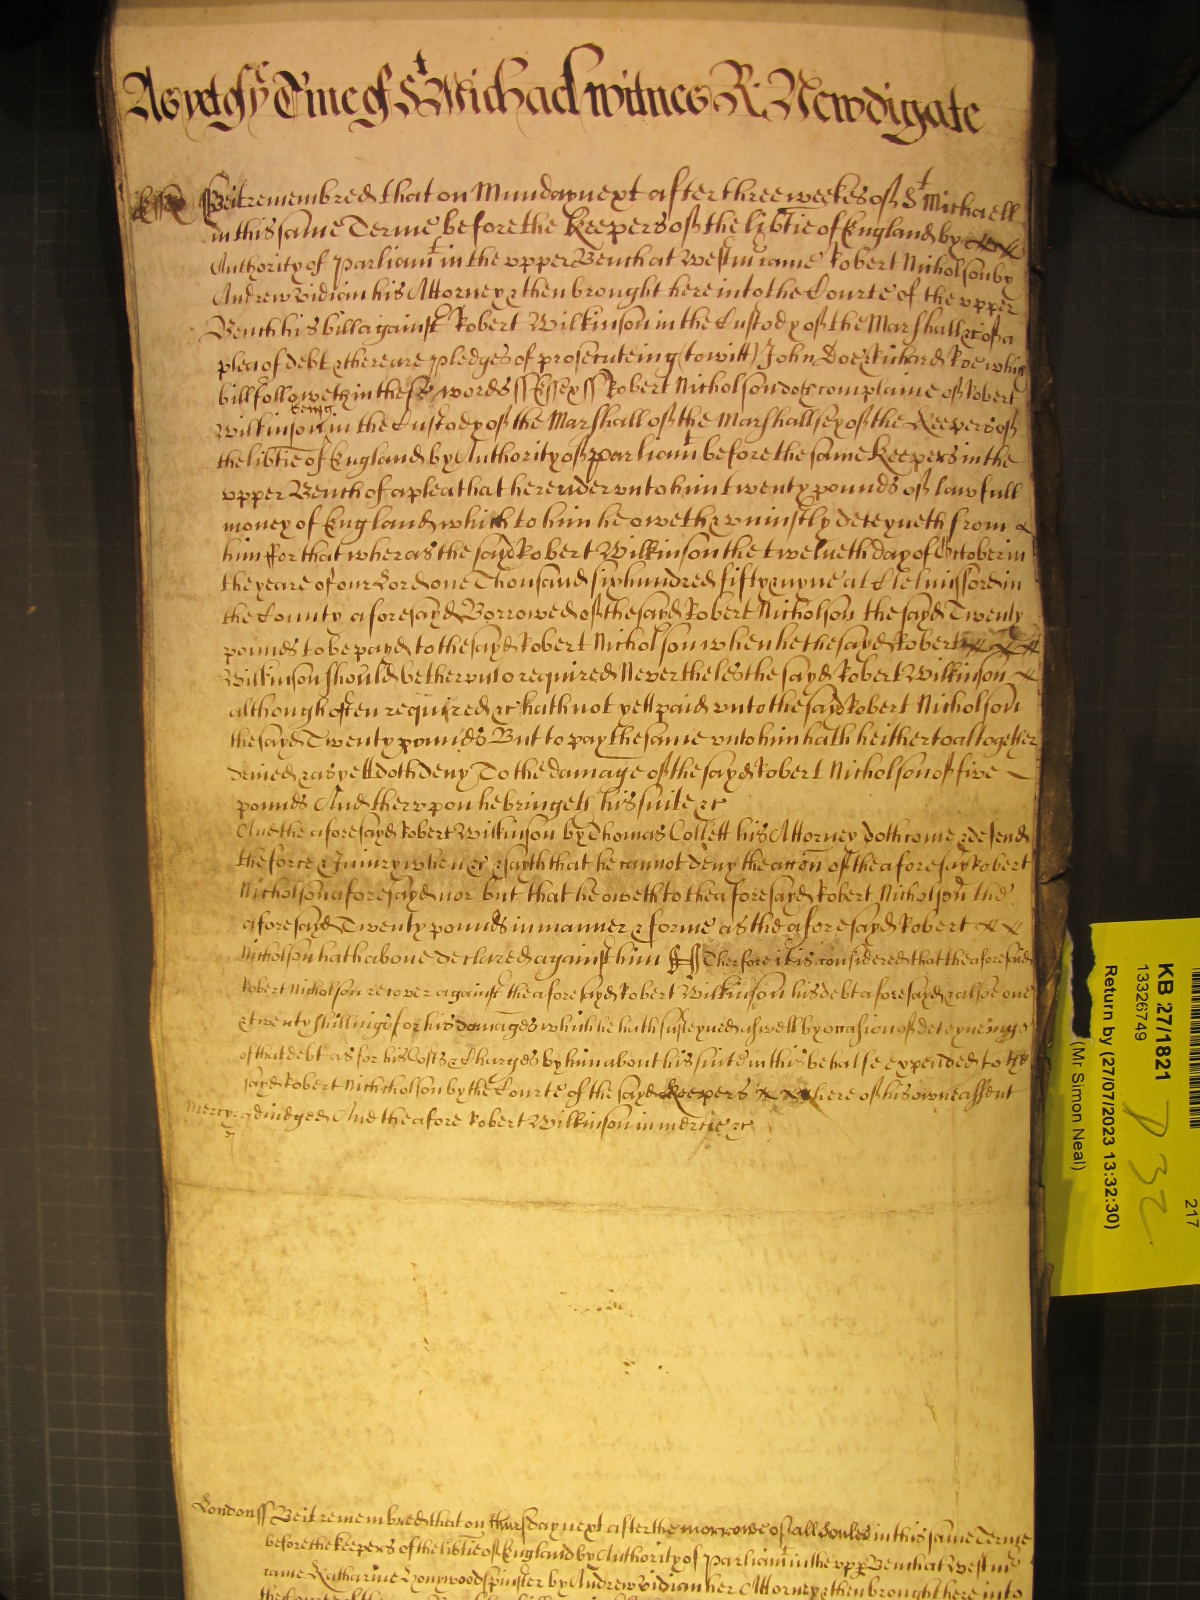 As yet of ye T'me of St Michael witnes R: Newdigate
Essex ss Beit remembred that on Munday next after three weekes of St Michaell
in this same Terme before the Keepers of the lib'tie of England by
Authority of Parliamt in the vpper Bench at Westm' came Robert Nicholson by
Andrew Vidian his Attorney & then brought here into the Courte of the vpper
Bench his bill against Robert Wilkinson in the Custody of the Marshall &c of a
plea of debt & there are pledges of prosecuteing (to witt) John Doe & Richard Roe which
bill followeth in these words ss Essex ss Robert Nicholson doth complaine of Robert
Wilkinson being in the Custody of the Marshall of the Marshallsey of the Keepers of
the lib'tie of England by Authority of parliamt before the same Keepers in the
vpper Bench of a plea that he render vnto him twenty pounds of lawfull
money of England which to him he oweth & vniustly deteyneth from
him ffor that wheras the sayd Robert Wilkinson the twelueth day of October in
the yeare of our Lord one Thousand six hundred fifty & nyne at Chelmisford in
the County aforesayd Borrowed of the sayd Robert Nicholson the sayd Twenty
pounds to be payd to the sayd Robert Nicholson when he the sayd Robert
Wilkinson should be thervnto required Neverthelesse the sayd Robert Wilkinson
although often required &c hath not yett paid vnto the said Robert Nicholson
the sayd Twenty pounds But to pay the same vnto him hath heitherto altogether
denied & as yett doth deny To the damage of the sayd Robert Nicholson of five
pounds And thervpon he bringeth his suite &c
And the aforesayd Robert Wilkinson by Thomas Collett his Attorney doth come & defend
the force & Iniury when &c & sayth that he cannot deny the acc'on of the aforesayd Robert
Nicholson aforesayd nor but that he oweth to the aforesayd Robert Nicholson the
aforesayd Twenty pounds in manner & forme as the aforesayd Robert
Nicholson hath aboue declared against him ss Therfore it is considered that the aforesaid
Robert Nicholson recover against the aforesayd Robert Wilkinson his debt aforesayd & alsoe one
& twenty shillings for his damages which he hath susteyned aswell by occasion of deteyneinge
of that debt as for his Costs & Charges by him about his suite in this behalfe expended to the
sayd Robert Nichcholson by the Courte of the sayd Keepers here of his owne assent
Mercy: adiudged And the afore Robert Wilkinson in mercie &c
London ss Beit remembred that on thursday next after the morrowe of all Soules in this same Terme
before the keepers of the lib'tie of England by Authority of Parliamt in the vpp' Bench at Westm'
came Katharine Honywood spinster by Andrew Vidian her Attorney & then brought here into
KB 27/1821
13326749
Return by (27/07/2023 13:32:30)
(Mr Simon Neal)
217